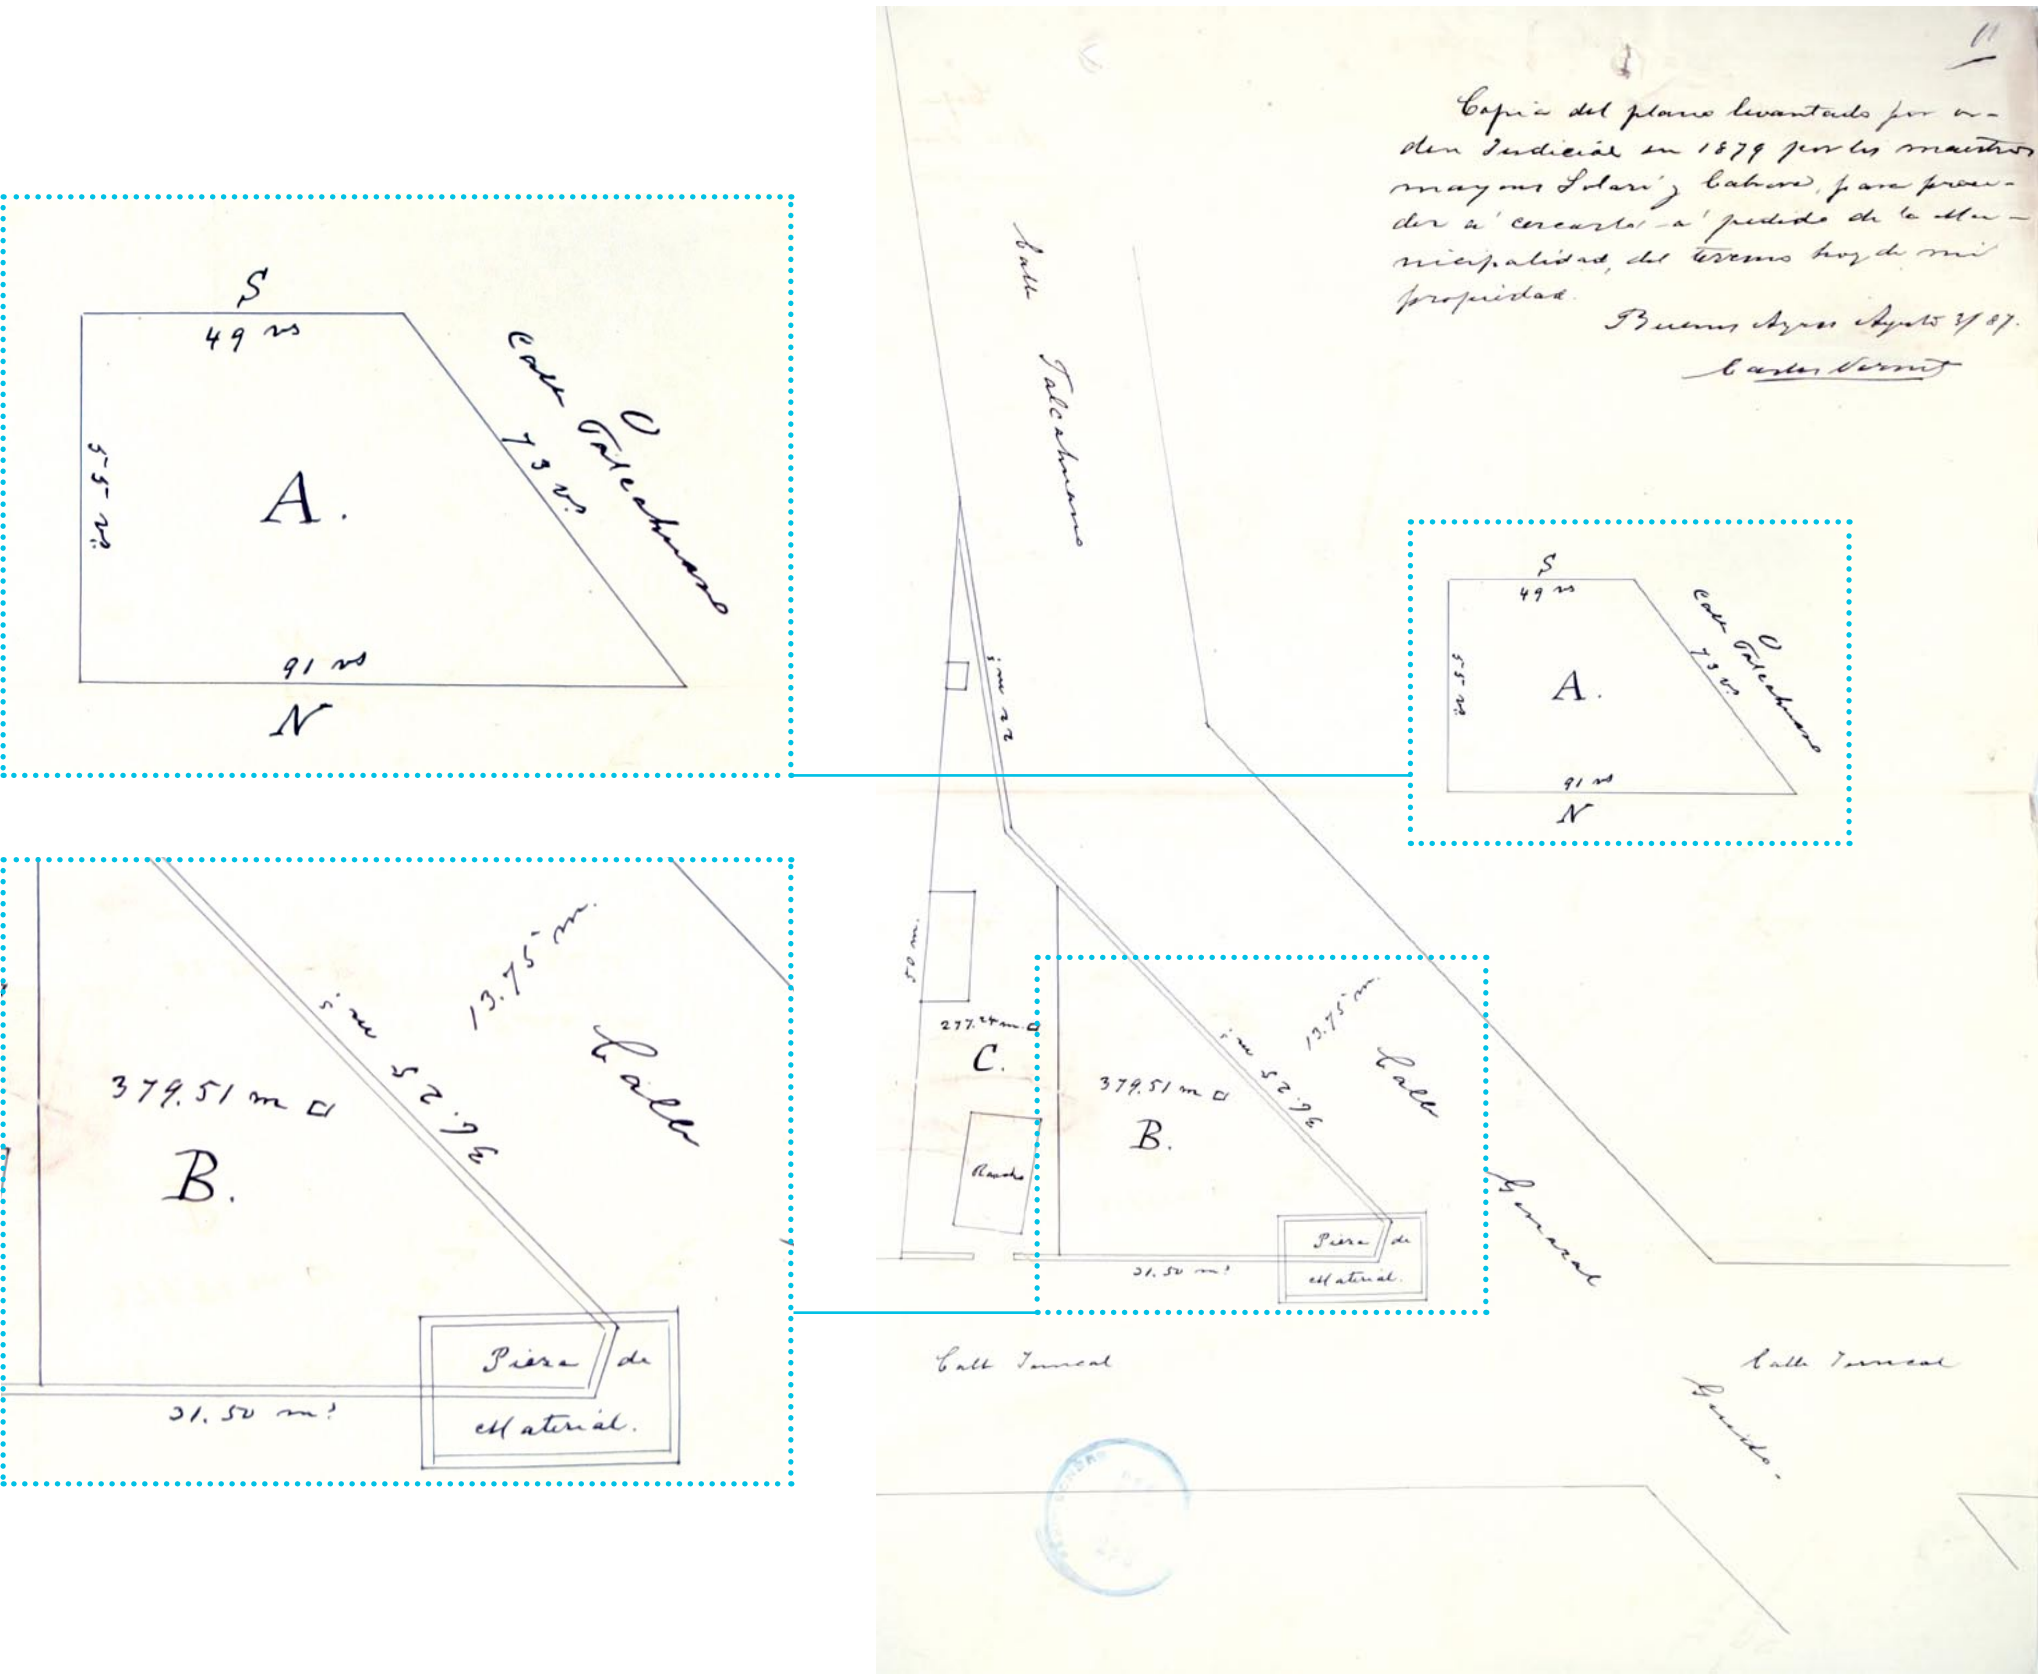 S
49 vs
Calle Talcahuano
O
73 vs
55 vs
A.
91 vs
N
13.75 m.
36.25 ms
Calle
379.51 m □
B.
Pieza de
Material.
21.50 ms
11
Copia del plano levantado por or-
den Judicial en 1879 por los maestros
mayores Solari y Cabrera, para proce-
der a' cercarlo a' pedido de la Mu-
nicipalidad, del terreno hoy de mi
propiedad.
Buenos Ayres Agosto 3/87.
Carlos Vernet
Calle Talcahuano
S
49 vs
Calle Talcahuano
O
73 vs
55 vs
A.
91 vs
N
22 ms
50 m.
277.24 m. □
C.
13.75 m.
36.25 ms
Calle
379.51 m □
B.
Rancho
General
Pieza de
Material.
21.50 ms
Calle Juncal
Calle Juncal
Guido.